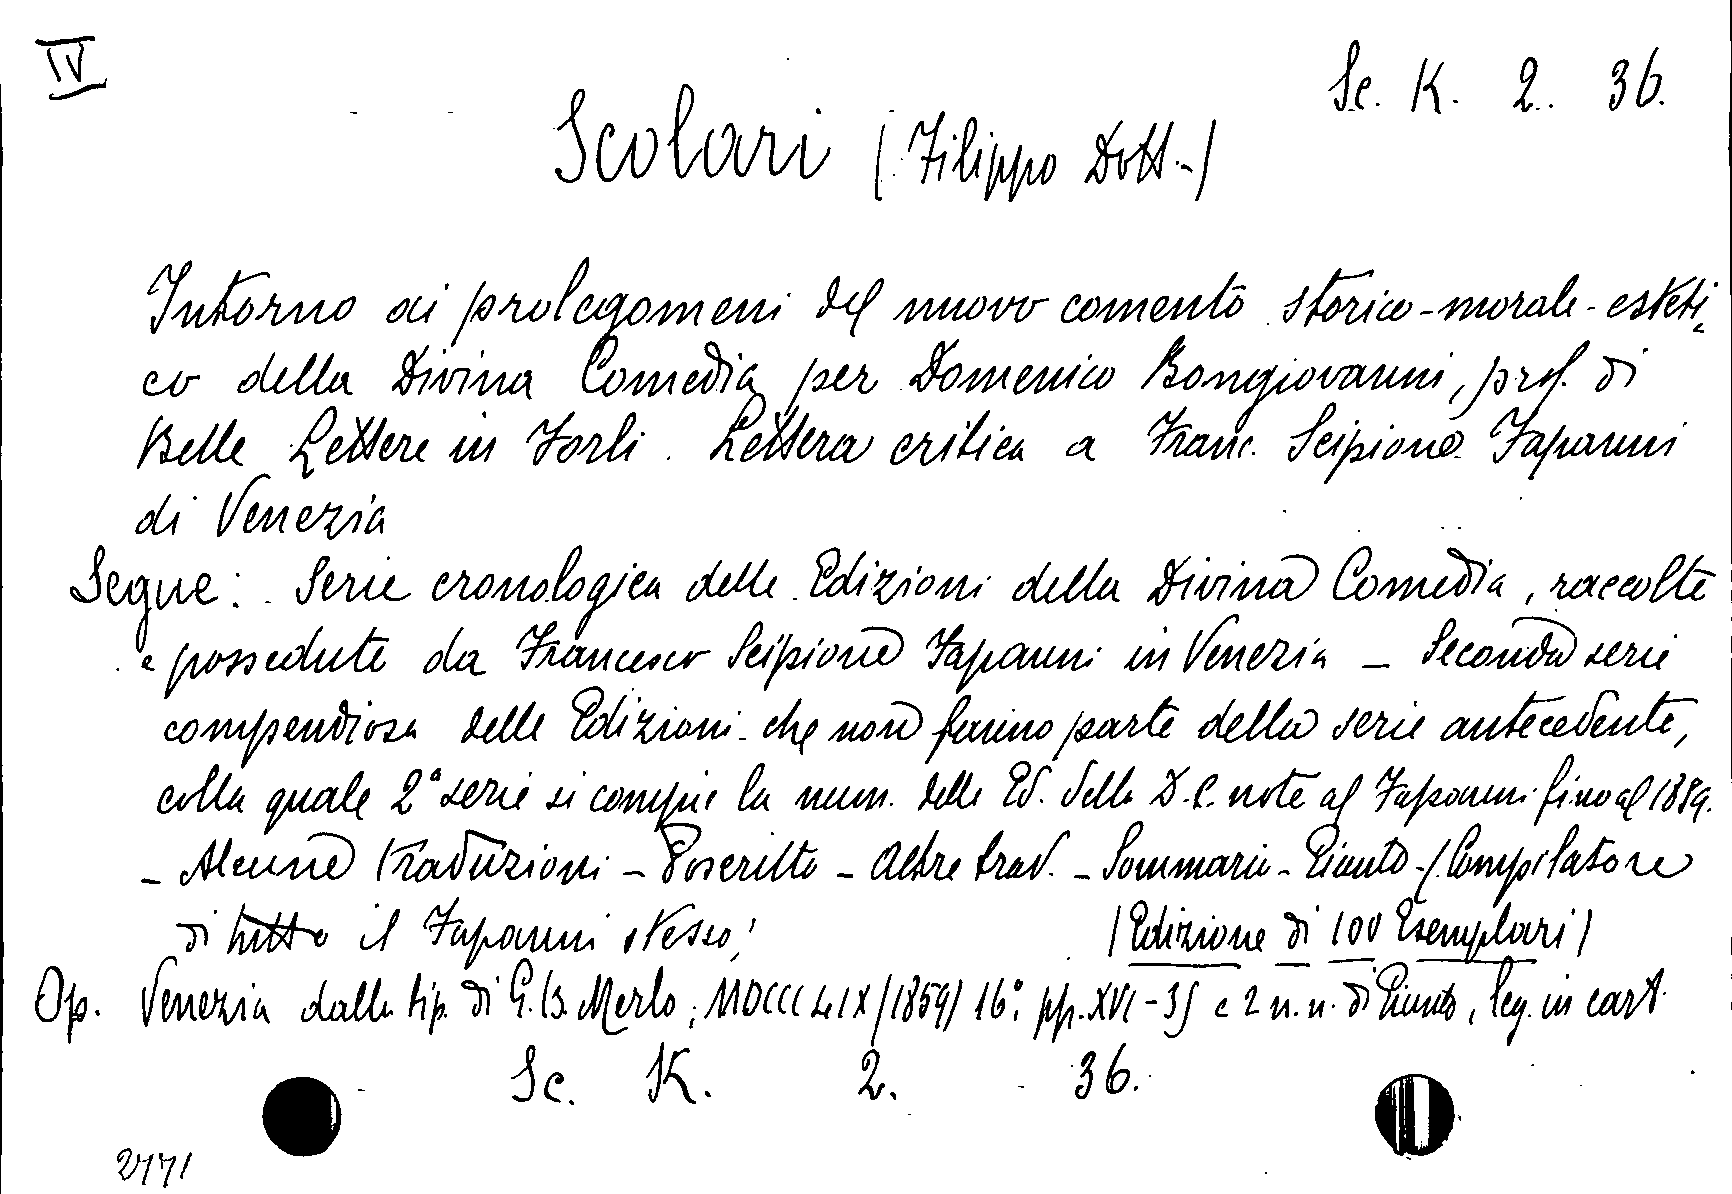 IV
Sc. K. 2. 36.
Scolari (Filippo Dott.-)
Intorno ai prolegomeni del nuovo comento storico-morale-esteti-
co della Divina Comedia per Domenico Bongiovanni, prof. di
Belle Lettere in Forlì. Lettera critica a Franc. Scipione Fapanni
di Venezia
Segue: Serie cronologica delle Edizioni della Divina Comedia, raccolte
e possedute da Francesco Scipione Fapanni in Venezia - Seconda serie
compendiosa delle Edizioni che non fanno parte della serie antecedente,
colla quale 2ª serie si compie la num. delle Ed. della D.C. note al Fapanni fino al 1859.
- Alcune traduzioni - Poscritto - Altre trad. - Sommario - Giunte - (Compilatore
di tutto il Fapanni stesso)
(Edizione di 100 Esemplari)
Op. Venezia dalla tip. di G.B. Merlo; MDCCCLIX (1859) 16° pp. XVI - 35 e 2 n.n. di Giunte, leg. in cart.
Sc. K. 2. 36.
2771